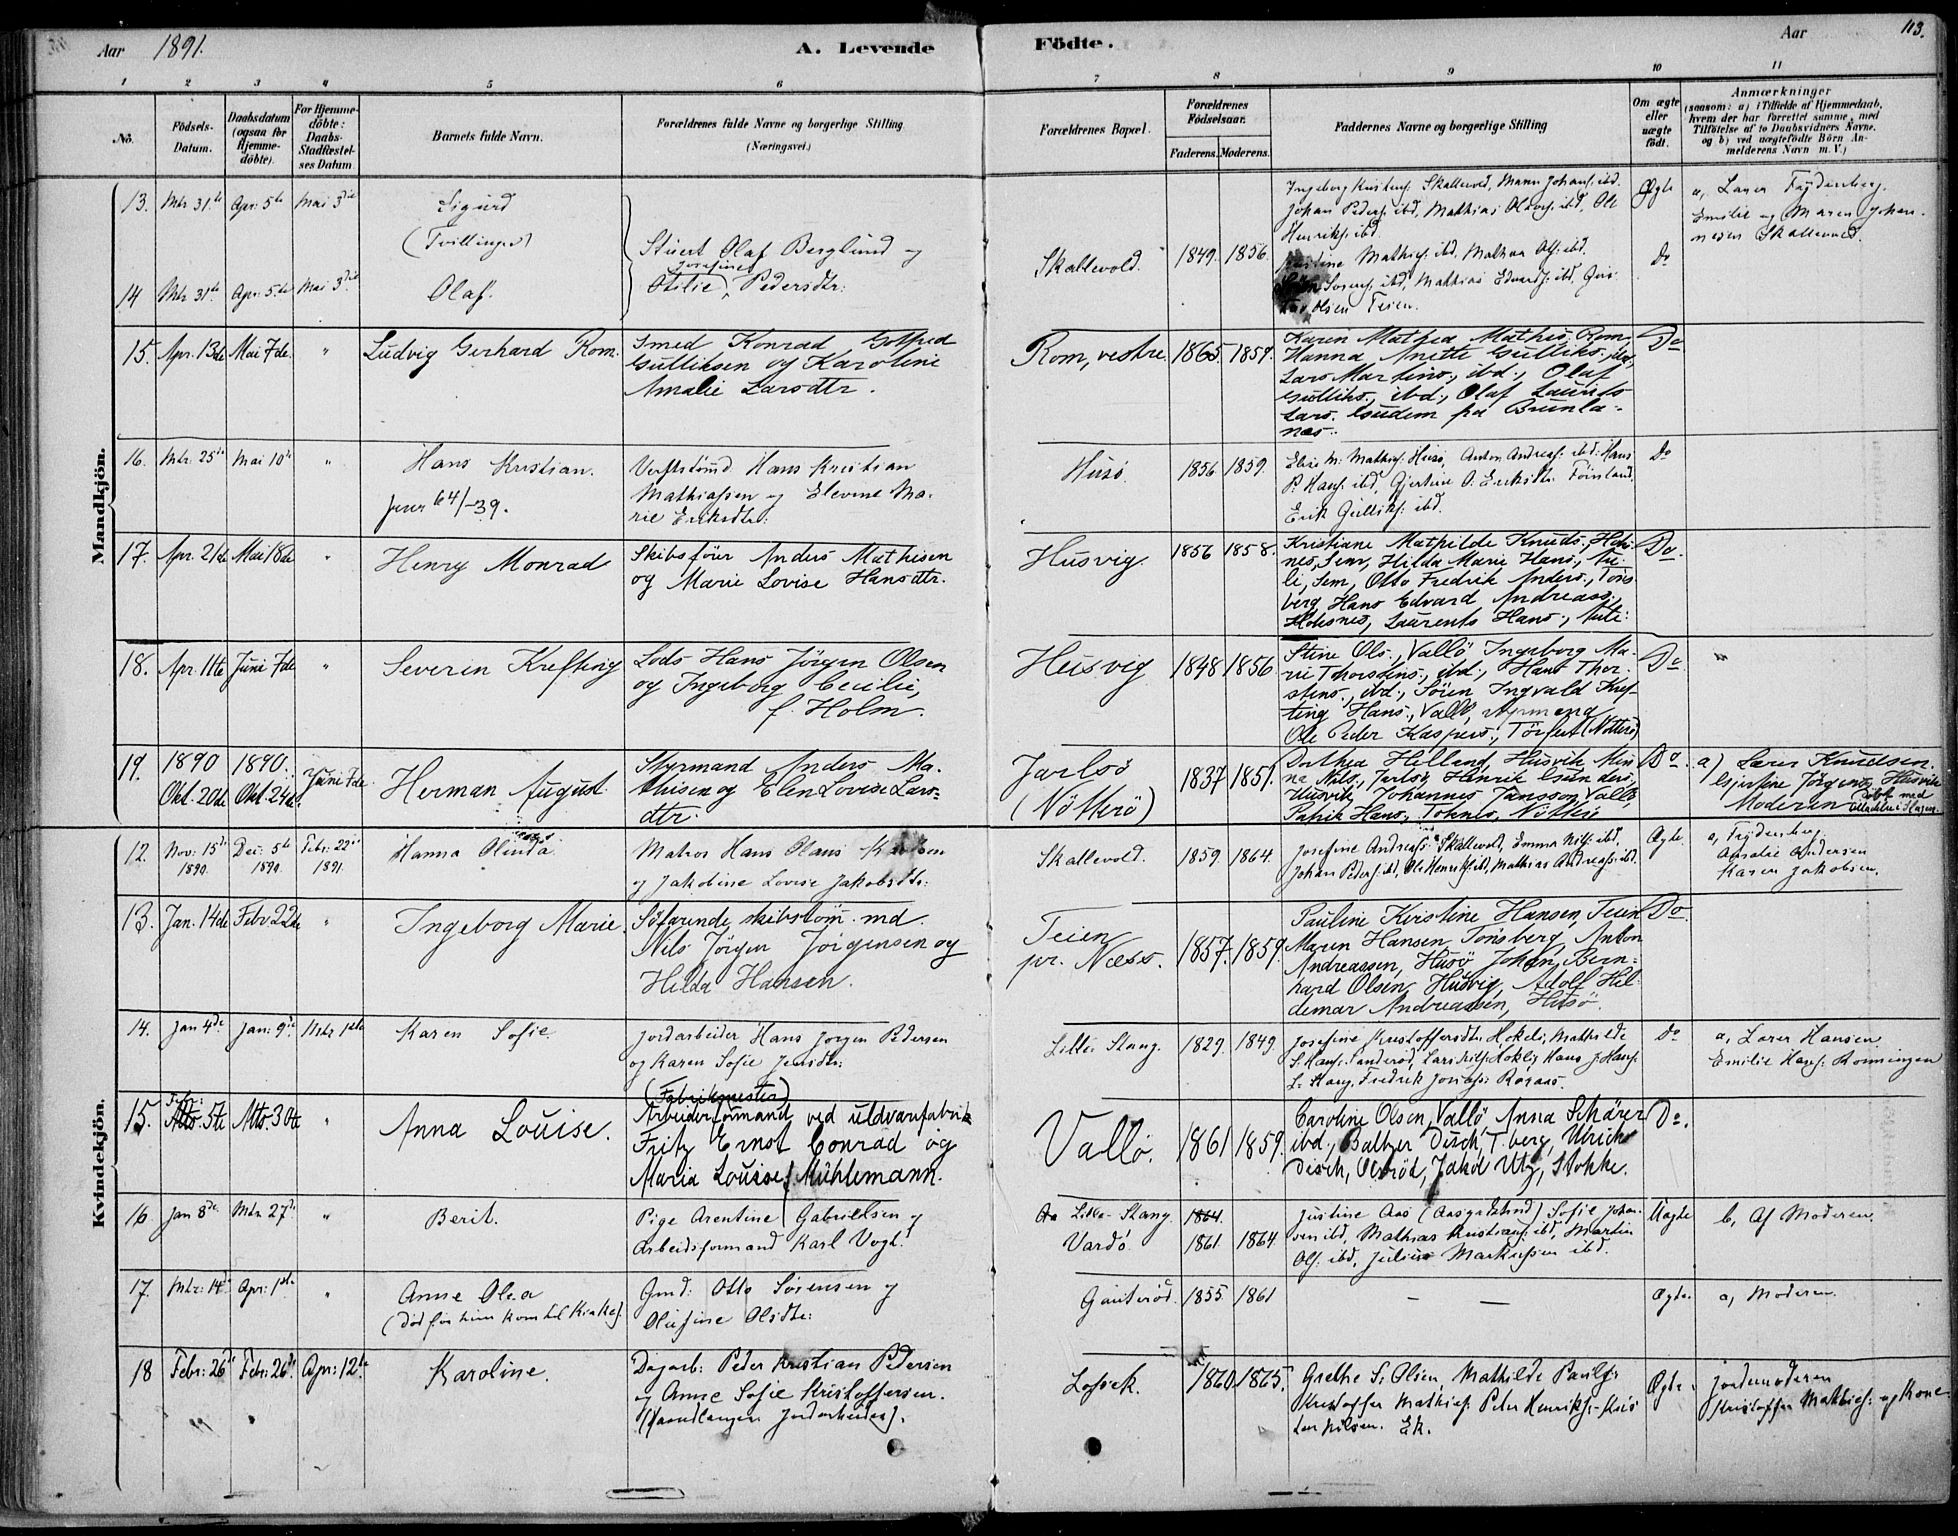 Aar 1891. A. Levende Födte. Aar 113.
1 2 3 4 5 6 7 8 9 10 11
No. Födsels-Datum. Daabsdatum (ogsaa for Hjemme-döbte). For Hjemme-döbte: Daabs-Stadfæstel-ses Datum. Barnets fulde Navn. Forældrenes fulde Navne og borgerlige Stilling (Næringsvei.) Forældrenes Bopæl. Forældrenes Födselsaar. Faderens. Moderens. Faddernes Navne og borgerlige Stilling Om ægte eller uægte födt. Anmærkninger
(saasom: a) i Tilfælde af Hjemmedaab,
hvem der har forrettet samme, med
Tilföielse af to Daabsvidners Navne.
og b) ved uægtefödte Börn An-
melderens Navn m. V.)
Mandkjön.
13. Mts 31te Apr: 5te Mai 3die Sigurd
(Tvillinger)
14 Mts 31te Apr: 5te Mai 3die Olaf.
Stuert Olaf Berglund og
Josefine
Otilie Pedersdtr:
Skallevold. 1849. 1856.
Johan Peders: ibd, Mathias Olsens: ibd, Ole
Henriks: ibd
Mathias Edvards: ibd,
Olsen Teien.
Ægte
Do
a, Lærer Frydenberg.
Emilie og Maren Johan-
nesen Skallevold.
15. Apr. 13de Mai 7de " Ludvig Gerhard Rom.
Smed Konrad Gotfred
Gulliksen og Karoline
Amalie Larsdtr.
Rom, vestre. 1865. 1859.
Karen Mathea Mathis. Rom,
Hanna Anette Gulliks., ibd,
Lars Martins., ibd., Olaf
Gulliks., ibd., Olaf Laurits
Lars. Gusdem fra Brunla-
næs.
Do
16. Mts. 25de Mai 10de " Hans Kristian.
Hans Kristian
Mathiassen og Elevine Ma-
rie Eriksdtr:
Husö. 1856 1859.
Elise M: Mathis: Husö, Anton Andreas: ibd: Hans
P. Hans: ibd, Gjertine O. Eriksdtr:
Erik Gulliks: ibd.
Do
17. Apr. 21de Mai 18de " Henry Monrad
Skibsförer Anders Mathisen
og Marie Lovise Hansdtr.
Husvig. 1856 1858.
Kristiane Mathilde Knuds.,
nes, Sem, Hilda Marie Hans., Au-
li, Sem, Otto Fredrik Anders., Töns-
berg, Hans Edvard Andreass.,
Laurents Hans., Auli:
Do.
18. Apr. 11te Juni 7de " Severin Krefting
Lods Hans Jörgen Olsen
og Ingeborg Cecilie,
f. Holm.
Husvig 1848 1856.
Stine Ols., Vallö Ingeborg Ma-
rie Thorstens., ibd., Hans Thor-
stens., ibd., Sören Ingvald Kref-
ting Hans., Vallö, Styrmand
Ole Peder Kaspers., (Nötterö)
Do
"
19. 1890 Okt. 20de 1890. Okt. 24de. Juni 7de. Herman August
Styrmand Anders Ma-
thisen og Elen Lovise Lars-
dtr.
Jarlsö
(Nötterö)
1837 1851.
Dorthea Helland, Husvik Min-
na Nils., Jarlsö, Henrik Gunders.,
Husvik, Johannes Jansson, Vallö
Patrik Hans., Nötterö
Do.
a) Lærer Knudsen.
Gjertine Jörgens., Husvik
Moderen
Kvindekjön.
12. Nov: 15de 1890. Dec: 5te 1890. Febr: 22de 1891. Hanna Olinda
Matros Hans Olaus
og Jakobine Lovise Jakobsdtr:
Skallevold. 1859. 1864.
Josefine Andreass: Skallevold, Emma Nils: ibd,
Johan Peders: ibd, Ole Henriks: ibd, Mathias Andreass: ibd.
Ægte.
a, Frydenberg.
Amalie Andersen
Karen Jakobsen.
13. Jan. 14de Febr. 22de " Ingeborg Marie.
Söfarende, skibstöm. md.
Nils Jörgen Jörgensen og
Hilda Hansen.
Teien
pr. Næss.
1857. 1859.
Pauline Kirstine Hansen, Teien
Maren Hansen Tönsberg, Anton
Andreassen, Husö Johan Bern-
hard Olsen, Husvig, Adolf Hil-
demar Andreassen, Husö.
Do.
14. Jan 4de Jan: 9de Mts 1ste Karen Sofie.
Jordarbeider Hans Jörgen Pedersen
og Karen Sofie Jensdtr:
Lille Stang. 1829. 1849
Josefine Kristoffersdtr: Mathilde
Hans J Hans:
L. Stang, Fredrik Rosaas.
Do
a, Lærer Hansen
Emilie Hans: Ronningen
15. Febr: 5te Mts. 30te " Anna Louise.
(Fabrikmester)
Arbeiderformand ved uldvarefabrik
Fritz Ernst Conrad og
Maria Louise f. Mühlemann.
Vallö. 1861 1859.
Caroline Olsen, Vallö, Anna Schärer
ibd., Baltzer Disch, T.berg, Ulrich
Disch, Olsröd, Jakob Utz, Stokke.
Do.
16 Jan 8de. Mts. 27de " Berit.
Pige Arentine Gabrielsen og
Arbeidsformand Karl Vogt.
Lille Stang.
Vardö.
1864.
1861. 1864.
Justine Aas (Aasgaardstrand) Sofie Johan-
sen ibd, Mathias Kristians: ibd, Martin
Ols: ibd, Julius Markussen ibd.
Uægte
b, Af Moderen.
17. Mts: 14de Apr: 1ste " Anne Olea
(död för hun kom til Kirke).
Gmd: Otto Sörensen og
Olufine Olsdtr:
Gauteröd. 1855 1861
— —
Ægte.
a, Moderen.
18 Febr: 26de Febr: 26de. Apr: 12te Karoline.
Dagarb: Peder Kristian Pedersen
og Anne Sofie Kristoffersen.
(Haandlanger Jordarbeider).
1860. 1865.
Grethe S. Olsen Mathilde Pauls:
Kristoffer Mathias: Peter Henriks: Kris-
ten Nilsen. Ek.
Ægte.
Jordmoderen
Kristoffer Mathias: og Kone.